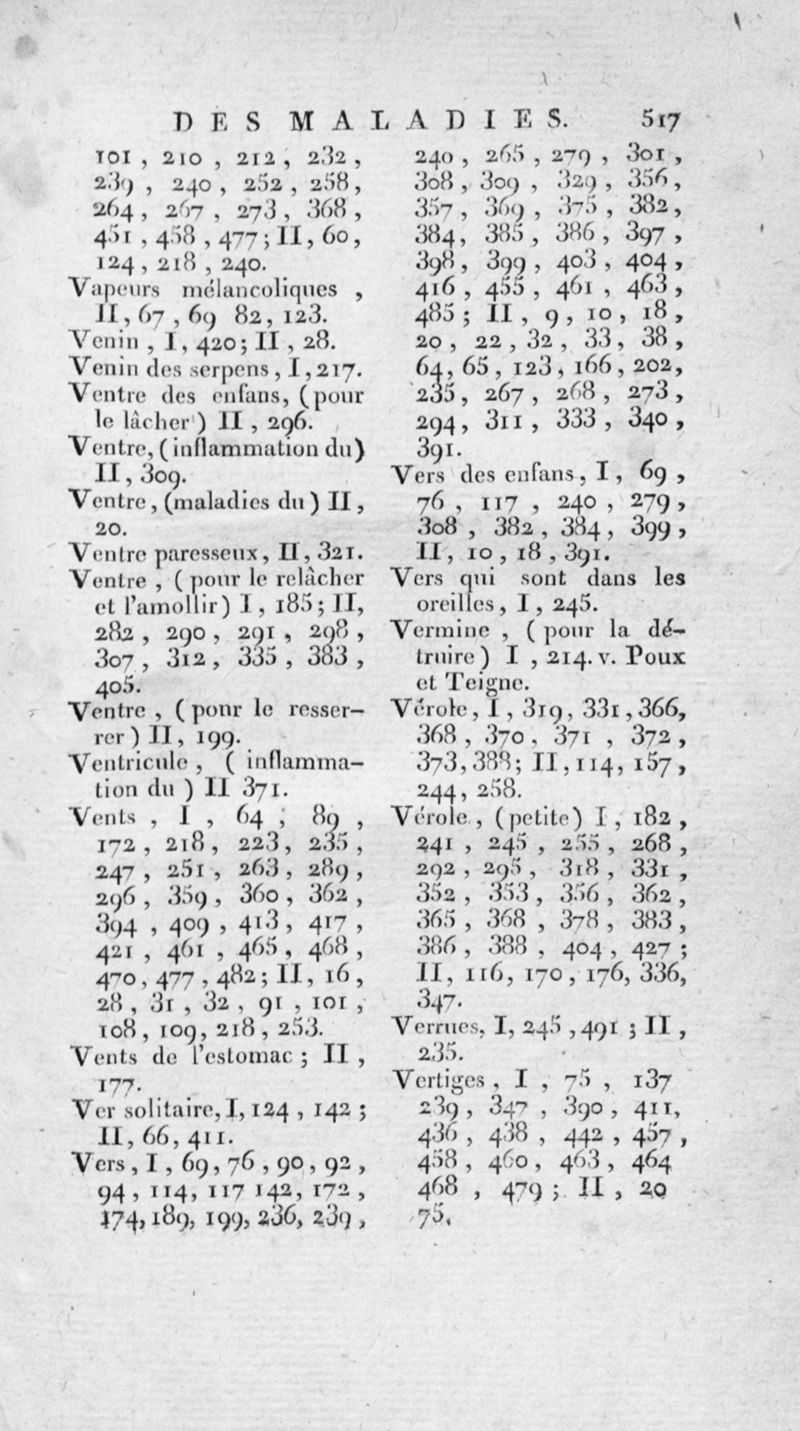 DES MALADIES. 517
101 , 210 , 212 , 232 ,
239 , 240 , 252 , 258,
264 , 267 , 273 , 368 ,
451 , 458 , 477 ; II , 60,
124 , 218 , 240.
Vapeurs mélancoliques ,
II , 67 , 69 82, 123.
Venin , I, 420; II , 28.
Venin des serpens , I , 217.
Ventre des enfans, (pour
le lâcher) II , 296.
Ventre, (inflammation du)
II , 309.
Ventre , (maladies du) II ,
20.
Ventre paresseux, II , 321.
Ventre , (pour le relâcher
et l'amollir) I , 185; II,
282 , 290 , 291 , 298 ,
307 , 312 , 335 , 383 ,
405.
Ventre , (pour le resser-
rer) II , 199.
Ventricule , ( inflamma-
tion du ) II 371.
Vents , I , 64 , 89 ,
172 , 218 , 223 , 235 ,
247 , 251 , 263 , 289 ,
296 , 359 , 360 , 362 ,
394 , 409 , 413 , 417 ,
421 , 461 , 465 , 468 ,
470, 477 , 482; II , 16 ,
28 , 31 , 32 , 91 , 101 ,
108 , 109, 218 , 253.
Vents de l'estomac ; II ,
177.
Ver solitaire, I, 124 , 142 ;
II, 66, 411.
Vers , I , 69, 76 , 90 , 92 ,
94 , 114, 117 142, 172 ,
174, 189, 199, 236, 239 ,
240 , 265 , 279 , 301 ,
308 , 309 , 329 , 356 ,
357 , 369 , 375 , 382 ,
384 , 385 , 386 , 397 ,
398 , 399 , 403 , 404 ,
416 , 455 , 461 , 463 ,
485 ; II , 9 , 10 , 18 ,
20 , 22 , 32 , 33 , 38 ,
64, 65 , 123 , 166 , 202,
235 , 267 , 268 , 273 ,
294 , 311 , 333 , 340 ,
391.
Vers des enfans, I , 69 ,
76 , 117 , 240 , 279 ,
308 , 382 , 384 , 399 ,
II , 10 , 18 , 391.
Vers qui sont dans les
oreilles , I , 245.
Vermine , ( pour la dé-
truire ) I , 214. v. Poux
et Teigne.
Vérole , I , 319, 331 , 366,
368 , 370 , 371 , 372 ,
373, 388; II , 114, 157 ,
244 , 258.
Vérole , (petite) I , 182 ,
241 , 245 , 255 , 268 ,
292 , 295 , 318 , 331 ,
352 , 353 , 356 , 362 ,
365 , 368 , 378 , 383 ,
386 , 388 , 404 , 427 ;
II, 116, 170 , 176, 336,
347.
Verrues, I, 245 , 491 ; II ,
235.
Vertiges , I , 75 , 137
239 , 347 , 390 , 411,
436 , 438 , 442 , 457 ,
458 , 460 , 463 , 464
468 , 479 ; II , 20
75.